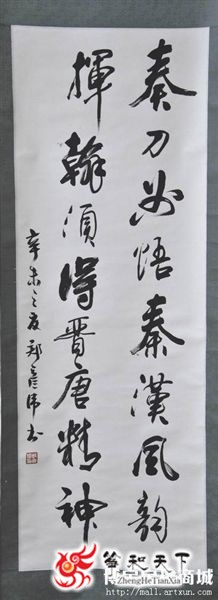 奏刀必悟秦漢风韻
揮翰須得晉唐精神
辛未之夏
和天下
ZhengHeTianXia
商城
http://mall.artxun.com